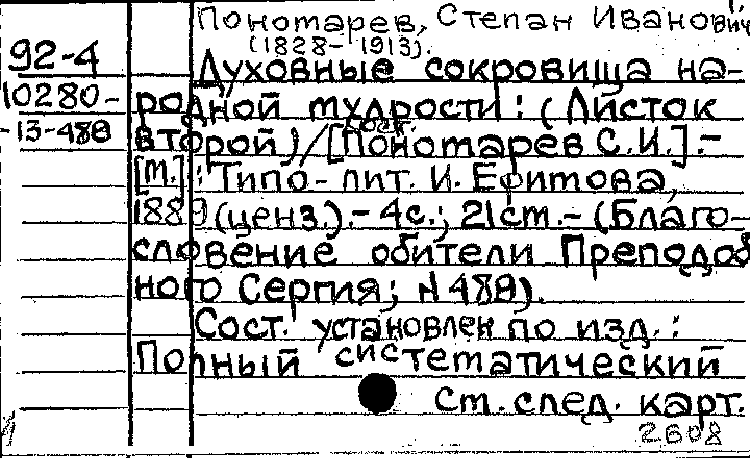 Пономарев, Степан Иванович
(1828-1913).
92-4
Духовные сокровища на-
10280-
родной мудрости: (Листок
-13-488
сост.
второй) / [Пономарев С.И.].-
[М.]: Типо-лит. И. Ефимова,
1889 (ценз.).- 4с.; 21см.- (Благо-
словение обители Преподоб
ного Сергия; N 488).
Сост. установлен по изд.:
Полный систематический
см. след. карт.
2608